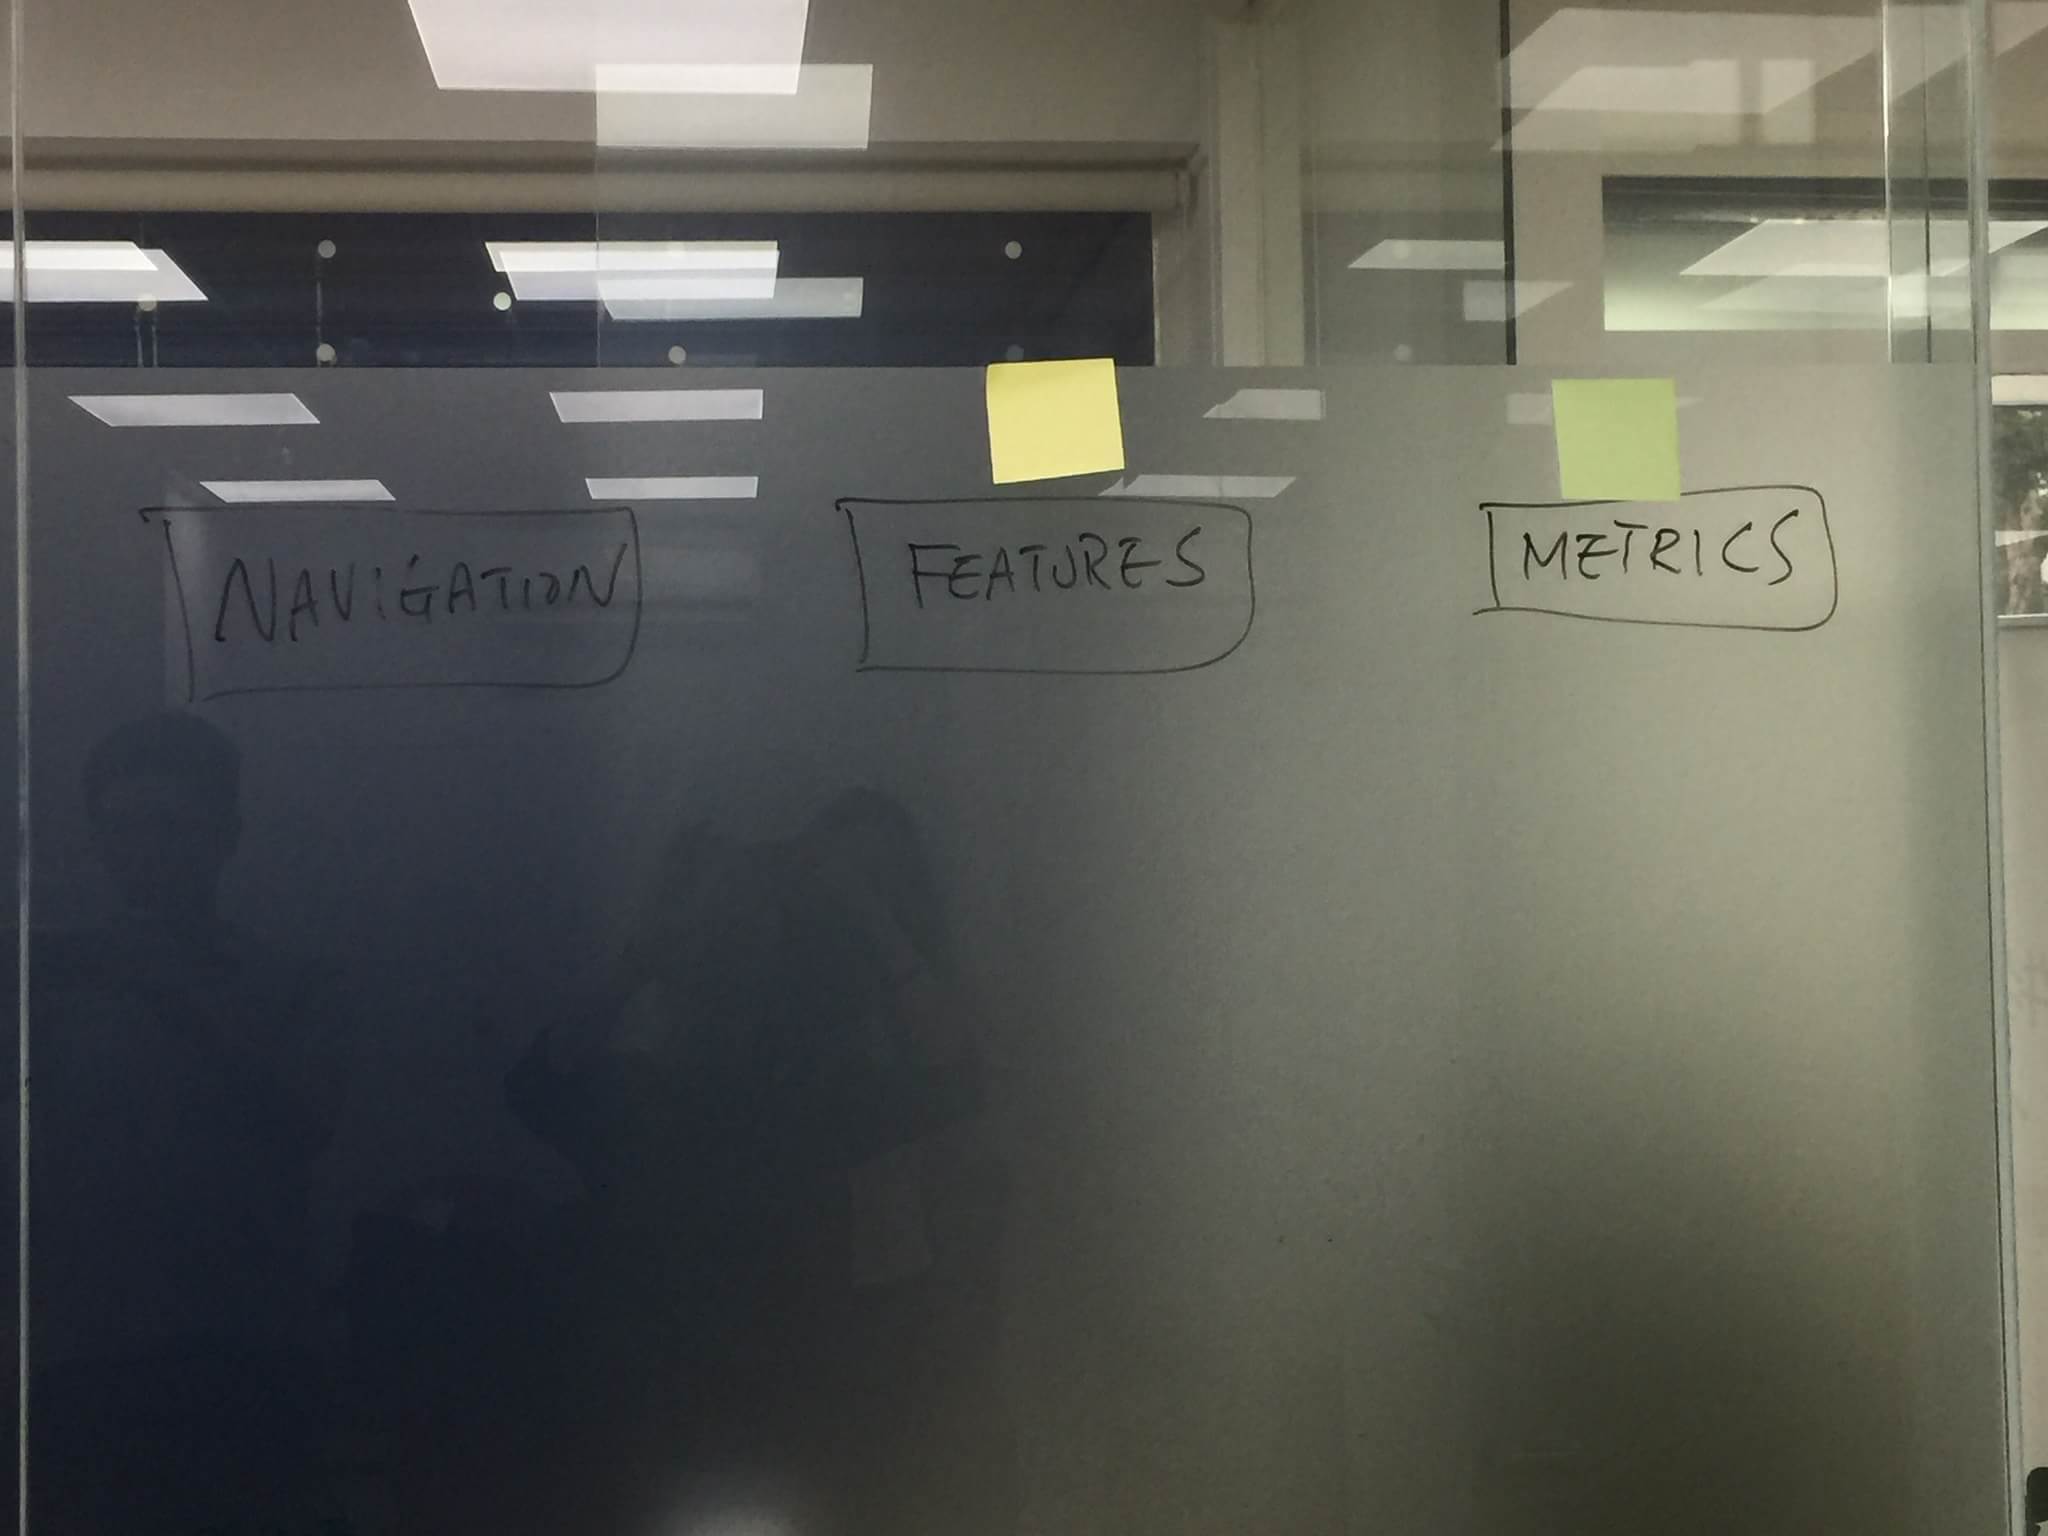 NAVIGATION
FEATURES
METRICS